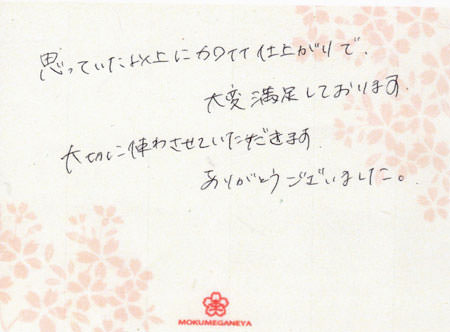 思っていた以上にカワイイ仕上がりで、
大変満足しております。
大切に使わさせていただきます。
ありがとうございました。
MOKUMEGANEYA